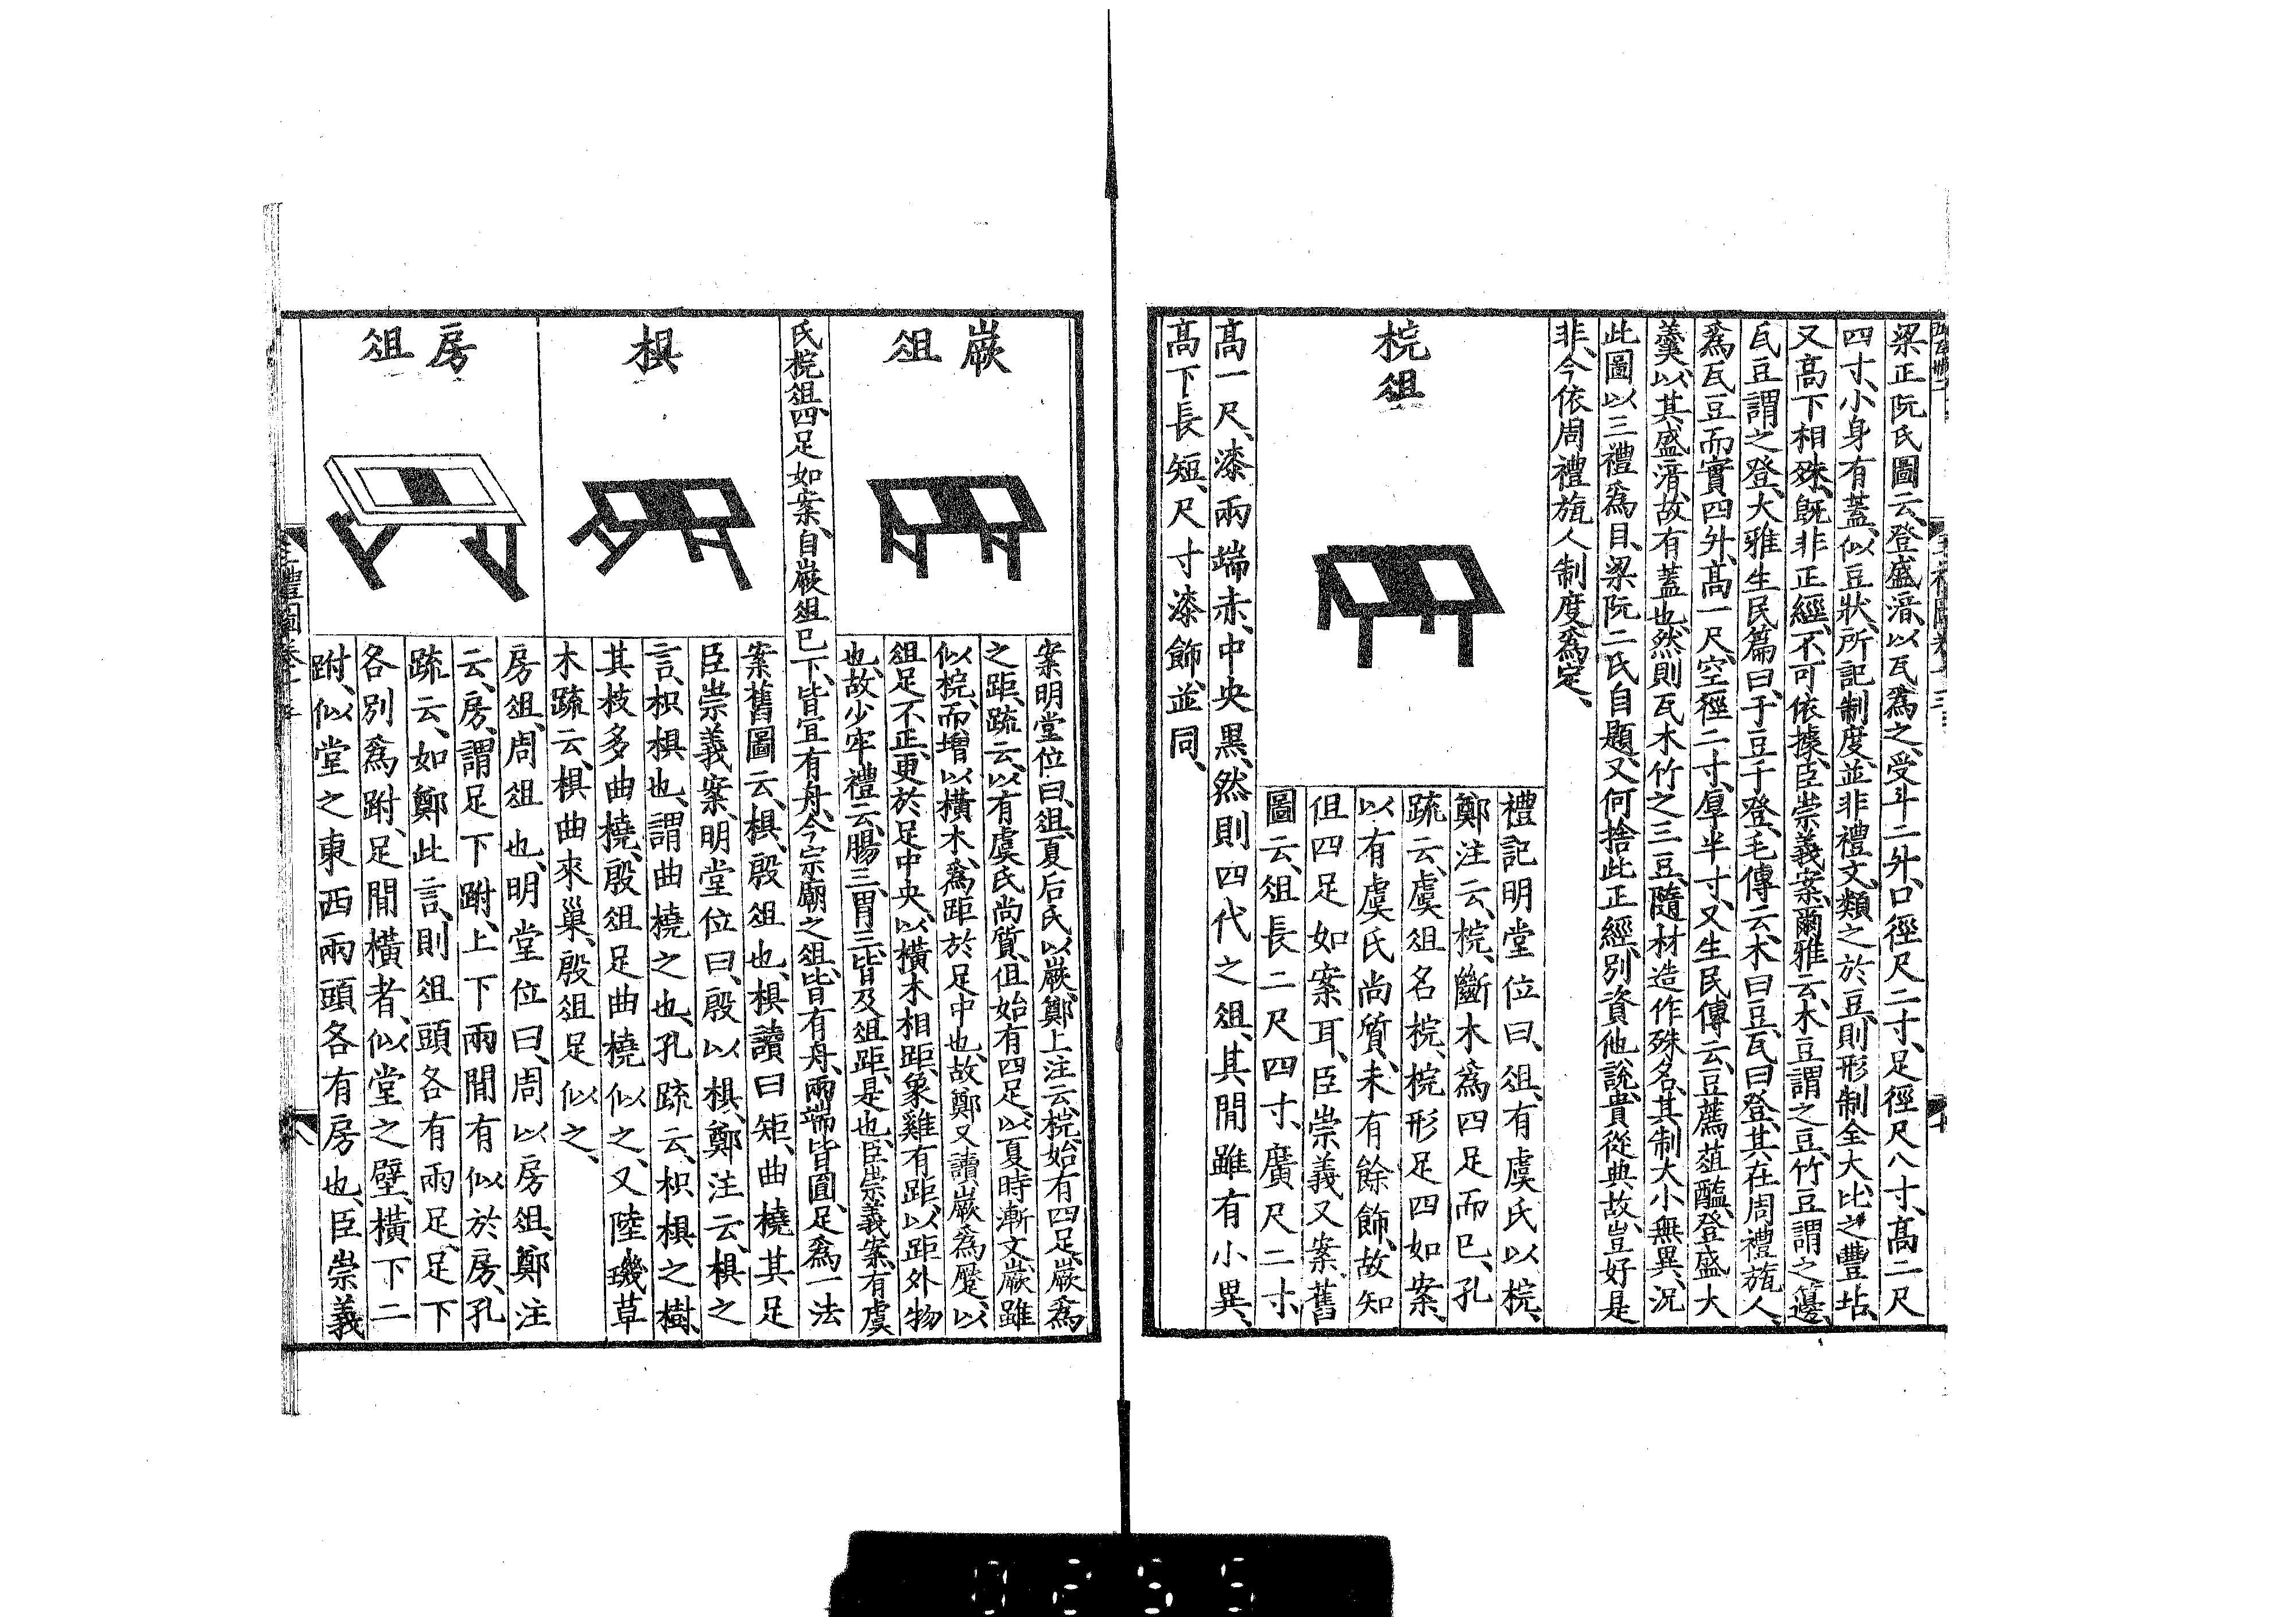 梁正阮氏圖云、登盛湆、以瓦爲之、受斗二升、口徑尺二寸、足徑尺八寸、高二尺
四寸、小身有蓋、似豆狀、所記制度、並非禮文、類之於豆、則形制全大、比之豐坫、
又高下相殊、既非正經、不可依據、臣崇義案、爾雅云、木豆謂之豆、竹豆謂之籩、
瓦豆謂之登、大雅生民篇曰、于豆于登、毛傳云、木曰豆、瓦曰登、其在周禮旊人、
爲瓦豆而實四升、高一尺、空徑二寸、厚半寸、又生民傳云、豆薦葅醢、登盛大
羹、以其盛湆、故有蓋也、然則瓦木竹之三豆、隨材造作殊名、其制大小無異、況
此圖以三禮爲目、梁阮二氏自題、又何捨此正經、別資他說、貴從典故、豈好是
非、今依周禮旊人制度爲定、
梡俎
禮記明堂位曰、俎、有虞氏以梡、
鄭注云、梡、斷木爲四足而已、孔
疏云、虞俎名梡、梡形足四如案、
以有虞氏尚質、未有餘飾、故知
但四足如案耳、臣崇義又案、舊
圖云、俎長二尺四寸、廣尺二寸、
高一尺、漆兩端赤、中央黑、然則四代之俎、其閒雖有小異、
高下長短、尺寸漆飾、並同、
嶡俎
案明堂位曰、俎、夏后氏以嶡、鄭上注云、梡、始有四足、嶡爲
之距、疏云、以有虞氏尚質、但始有四足、以夏時漸文、嶡雖
似梡、而增以橫木、爲距於足中也、故鄭又讀嶡爲蹷、以
俎足不正、更於足中央、以橫木相距、象雞有距、以距外物
也、故少牢禮云、腸三胃三、皆及俎距、是也、臣崇義案、有虞
氏梡俎、四足如案、自嶡俎已下、皆宜有舟、今宗廟之俎、皆有舟、兩端皆圓、足爲一法
椇
案舊圖云、椇、殷俎也、椇讀曰矩、曲橈其足
臣崇義案、明堂位曰、殷以椇、鄭注云、椇之
言、枳椇也、謂曲橈之也、孔疏云、枳椇之樹、
其枝多曲橈、殷俎足曲橈似之、又陸璣草
木疏云、椇曲來巢、殷俎足似之、
房俎
房俎、周俎也、明堂位曰、周以房俎、鄭注
云、房、謂足下跗、上下兩閒有似於房、孔
疏云、如鄭此言、則俎頭各有兩足、足下
各別爲跗、足閒橫者、似堂之壁、橫下二
跗、似堂之東西兩頭各有房也、臣崇義
八
0255